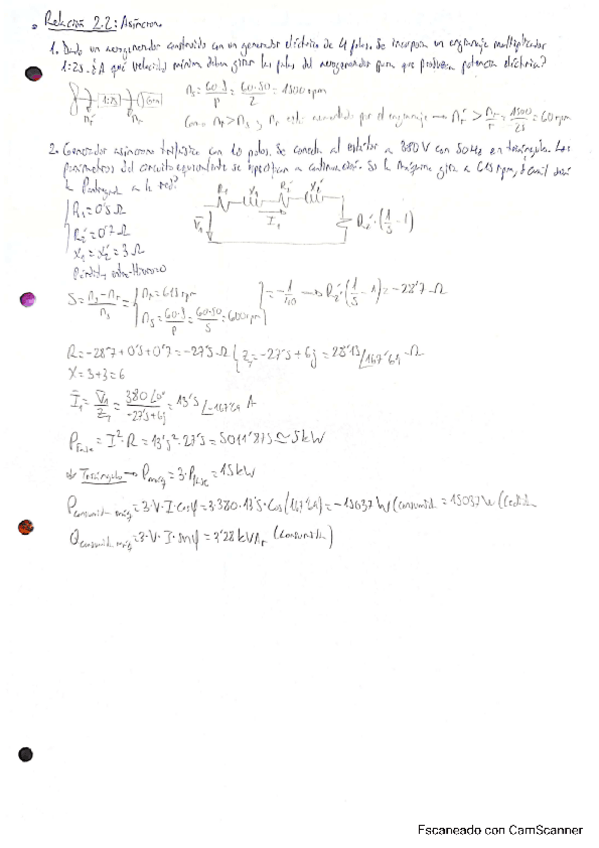 • Relación 2.2: Asíncrona
1. Dado un aerogenerador construido con un generador eléctrico de 4 polos. Se incorpora un engranaje multiplicador
1:25. ¿A qué velocidad mínima deben girar las palas del aerogenerador para que produzca potencia eléctrica?
1:25 Gen
nr' nr
ns = 60·f/p = 60·50/2 = 1500 rpm
Como nr > ns y nr está aumentado por el engranaje → nr' > nr/r = 1500/25 = 60 rpm
2. Generador asíncrono trifásico con 10 polos. Se conecta al estator a 380 V con 50 Hz en triángulo. Los
parámetros del circuito equivalente se especifican a continuación. Si la máquina gira a 615 rpm, ¿cuál será
la P entregada a la red?
R1 X1 R2' X2'
V1 I1 R2'·(1/s - 1)
R1 = 0'5 Ω
R2' = 0'7 Ω
X1 = X2' = 3 Ω
S = (ns - nr)/ns = { nr = 615 rpm
ns = 60·f/p = 60·50/5 = 600 rpm } = -1/40 → R2'·(1/s - 1) = -28'7 Ω
R = -28'7 + 0'5 + 0'7 = -27'5 Ω { ZT = -27'5 + 6j = 28'15 ∠167'69 Ω
X = 3+3 = 6
I1 = V1/ZT = 380∠0°/(-27'5+6j) = 13'5 ∠-167'69 A
P fase = I²·R = 13'5²·27'5 = 5011'875 ≃ 5 kW
Triángulo → P maq = 3·P fase = 15 kW
P consumida maq = 3·V·I·cosφ = 3·380·13'5·cos(167'69) = -15037 W (consumida) = 15037 W (cedida)
Q consumida maq = 3·V·I·sinφ = 3'28 kVAr (consumida)
Escaneado con CamScanner